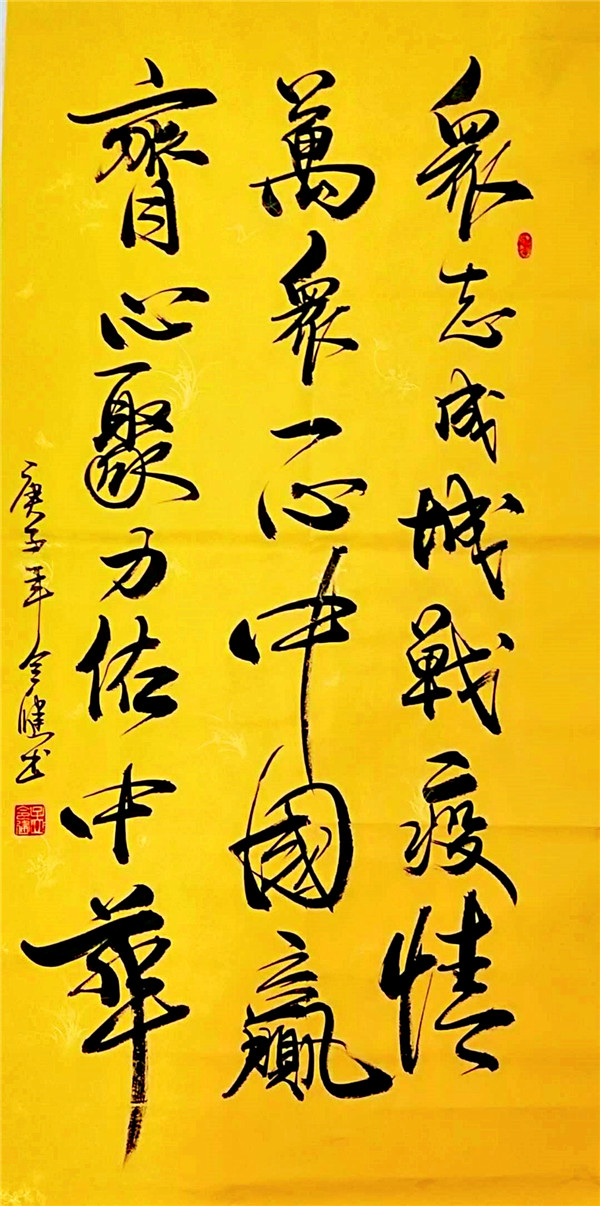 眾志成城戰疫情
萬眾一心中國贏
齊心聚力佑中華
庚子年